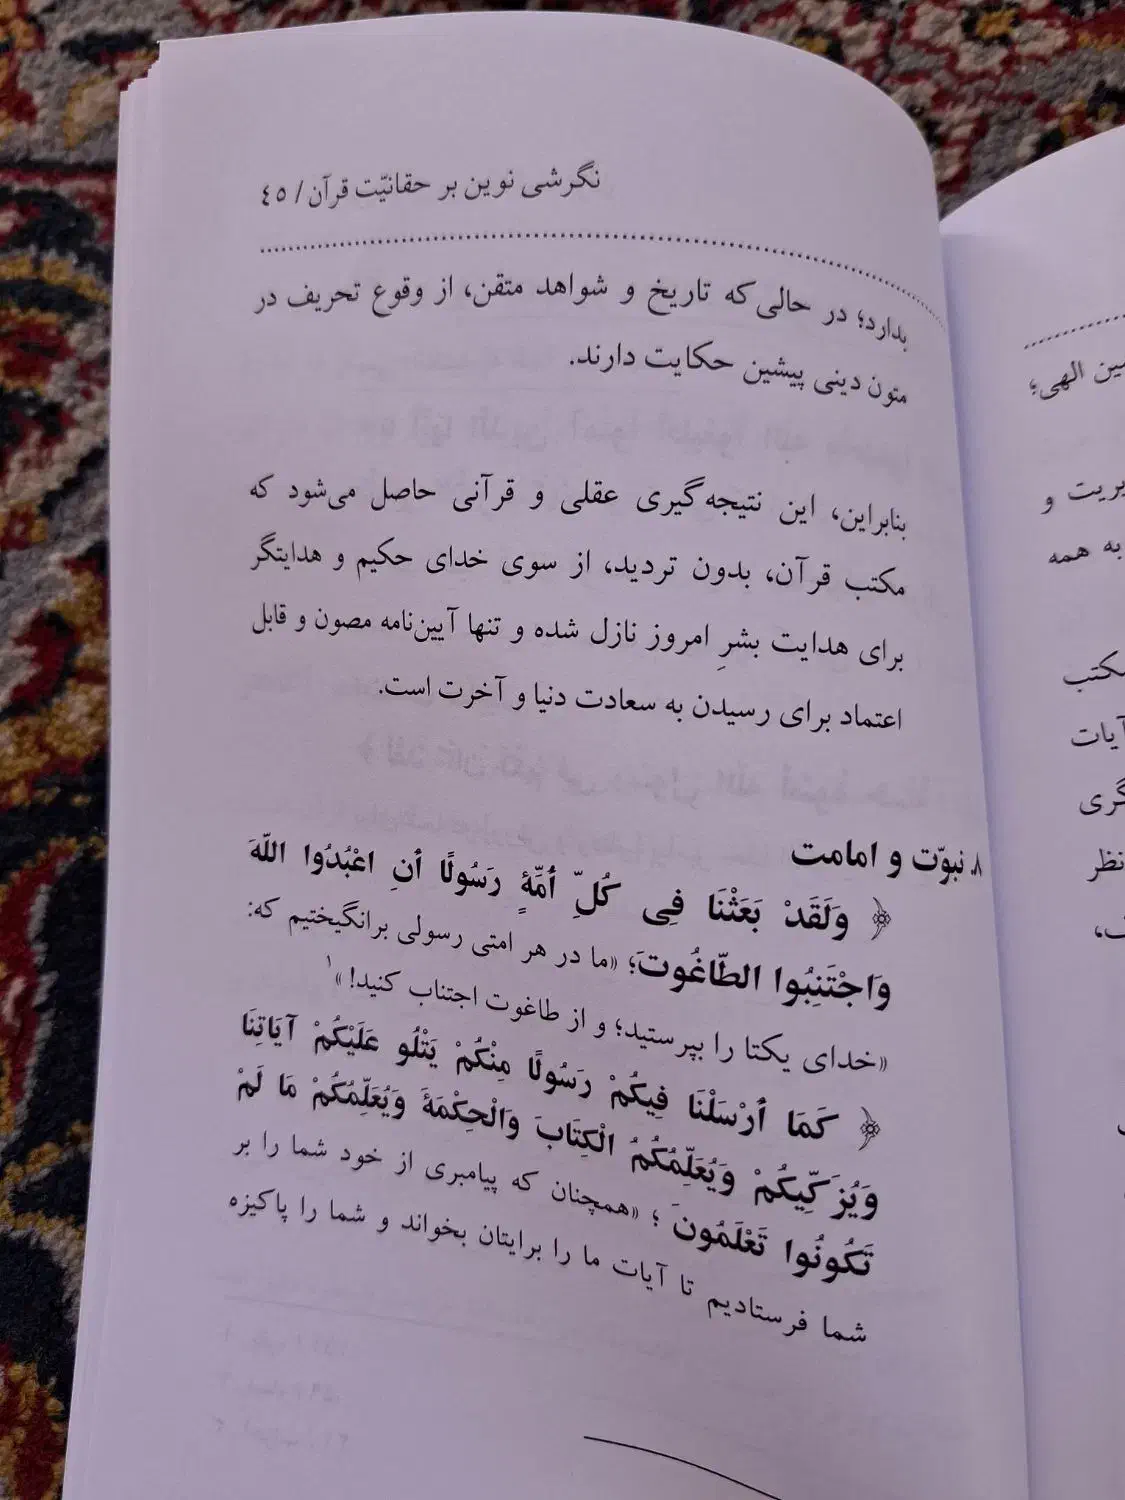 نگرشی نوین بر حقانیّت قرآن / ٤٥
بدارد؛ در حالی‌که تاریخ و شواهد متقن، از وقوع تحریف در
متون دینی پیشین حکایت دارند.
بنابراین، این نتیجه‌گیری عقلی و قرآنی حاصل می‌شود که
مکتب قرآن، بدون تردید، از سوی خدای حکیم و هدایتگر
برای هدایت بشرِ امروز نازل شده و تنها آیین‌نامه مصون و قابل
اعتماد برای رسیدن به سعادت دنیا و آخرت است.
٨. نبوّت و امامت
وَلَقَدْ بَعَثْنَا فِی کُلِّ أمّةٍ رَسُولًا أنِ اعْبُدُوا اللّهَ
وَاجْتَنِبُوا الطّاغُوتَ؛ «ما در هر امتی رسولی برانگیختیم که:
«خدای یکتا را بپرستید؛ و از طاغوت اجتناب کنید!»١
کَمَا أرْسَلْنَا فِیکُمْ رَسُولًا مِنْکُمْ یَتْلُو عَلَیْکُمْ آیَاتِنَا
وَیُزَکِّیکُمْ وَیُعَلِّمُکُمُ الْکِتَابَ وَالْحِکْمَةَ وَیُعَلِّمُکُمْ مَا لَمْ
تَکُونُوا تَعْلَمُونَ ؛ «همچنان که پیامبری از خود شما را بر
شما فرستادیم تا آیات ما را برایتان بخواند و شما را پاکیزه
الهی؛
و
به همه
مکتب
آیات
نظر